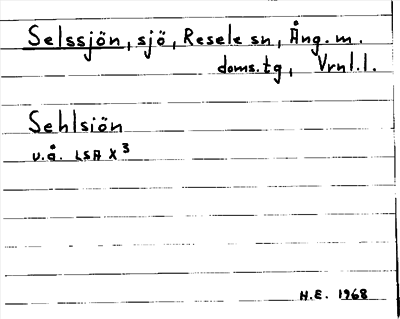 Selssjön, sjö, Resele sn, Ång. m.
doms.tg, Vrnl.l.
Sehlsiön
u.å. LSA X³
H.E. 1968